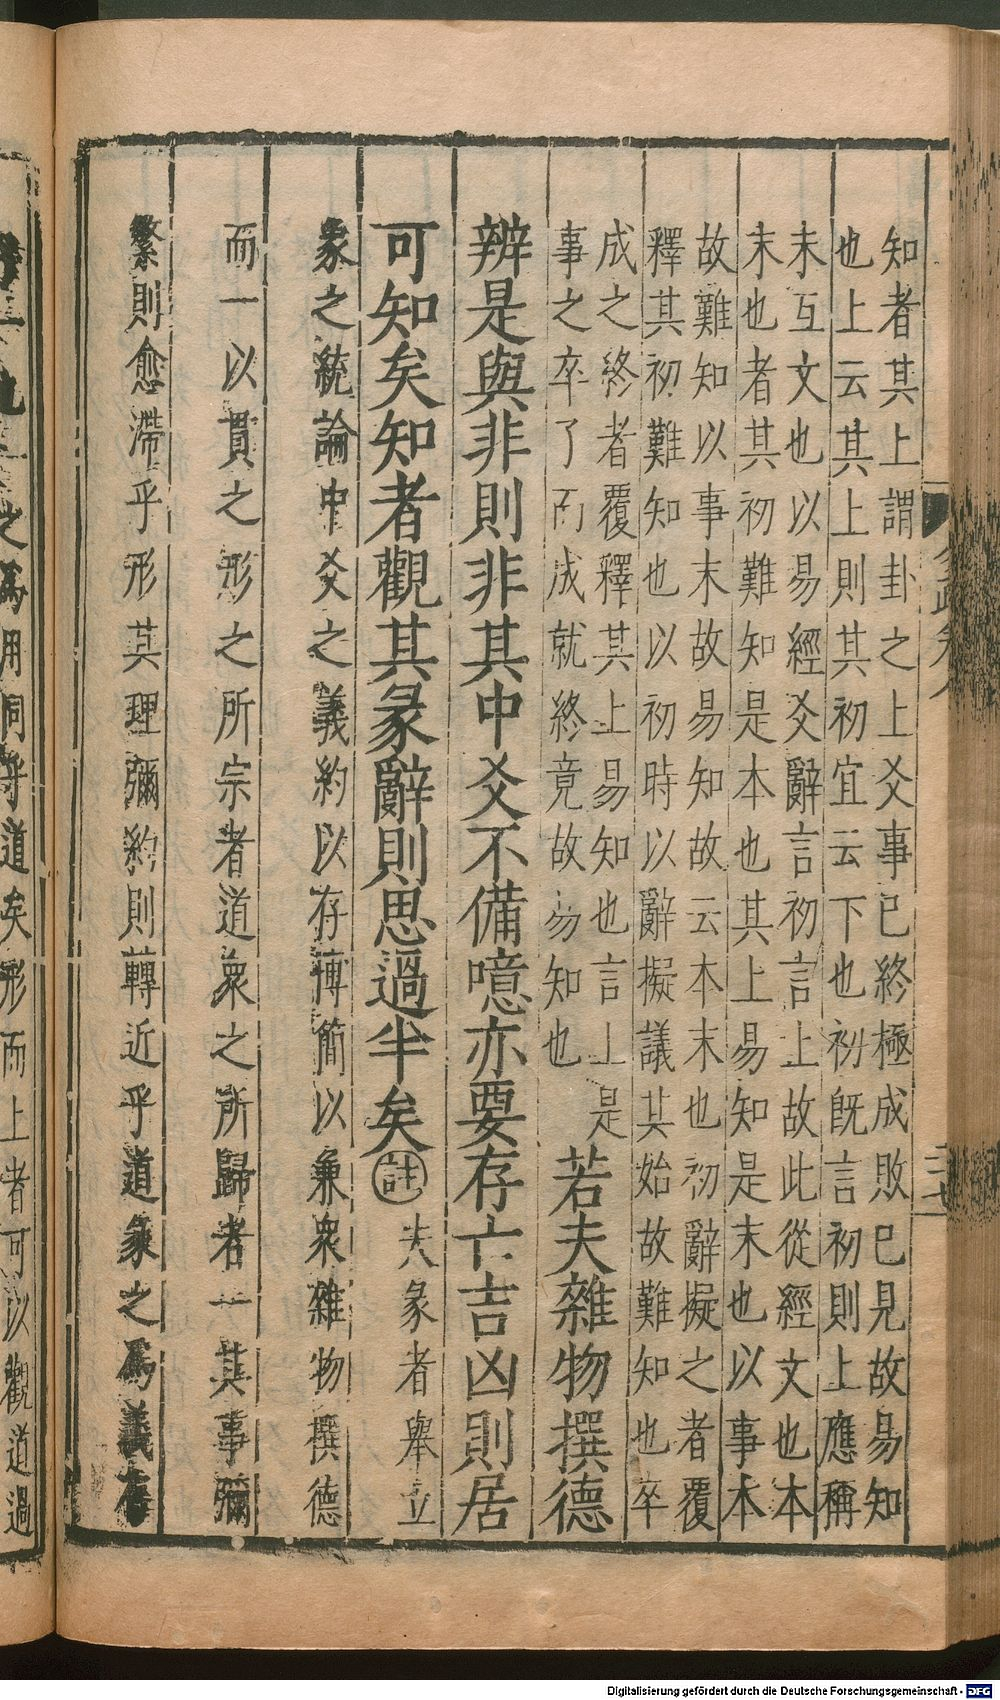 知者其上謂卦之上爻事已終極成敗已見故易知
也上云其上則其初宜云下也初旣言初則上應稱
末互文也以易經爻辭言初言上故此從經文也本
末也者其初難知是本也其上易知是末也以事本
故難知以事末故易知故云本末也初辭擬之者覆
釋其初難知也以初時以辭擬議其始故難知也卒
成之終者覆釋其上易知也言上是
事之卒了而成就終竟故易知也
若夫雜物撰德
辨是與非則非其中爻不備噫亦要存亡吉凶則居
可知矣知者觀其彖辭則思過半矣
註
夫彖者舉立
象之統論中爻之義約以存博簡以兼衆雜物撰德
而一以貫之形之所宗者道衆之所歸者一其事彌
繁則愈滯乎形其理彌約則轉近乎道彖之爲義存
之爲用同乎道矣形而上者可以觀道過
Digitalisierung gefördert durch die Deutsche Forschungsgemeinschaft - DFG